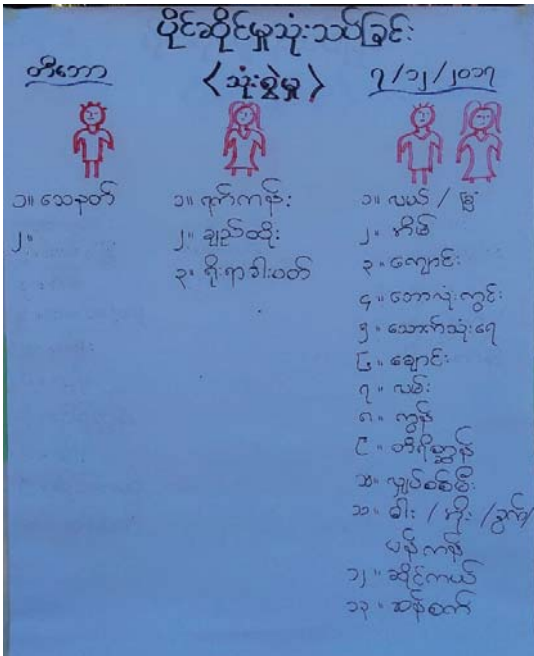 ပိုင်ဆိုင်မှုသုံးသပ်ခြင်း
တီဘော
(သုံးစွဲမှု)
၇/၁၂/၂၀၁၇
၁။ သေနတ်
၂။
၁။ ရက်ကန်း
၂။ ချည်ထိုး
၃။ ရိုးရာခါးပတ်
၁။ လယ် / ခြံ
၂။ အိမ်
၃။ ကျောင်း
၄။ ဘောလုံးကွင်း
၅။ သောက်သုံးရေ
၆။ ချောင်း
၇။ လမ်း
၈။ ကွန်
၉။ တိရိစ္ဆာန်
၁၀။ လျှပ်စစ်မီး
၁၁။ ဓါး / အိုး / ခွက်/
ပန်ကန်
၁၂။ ဆိုင်ကယ်
၁၃။ ဆန်စက်